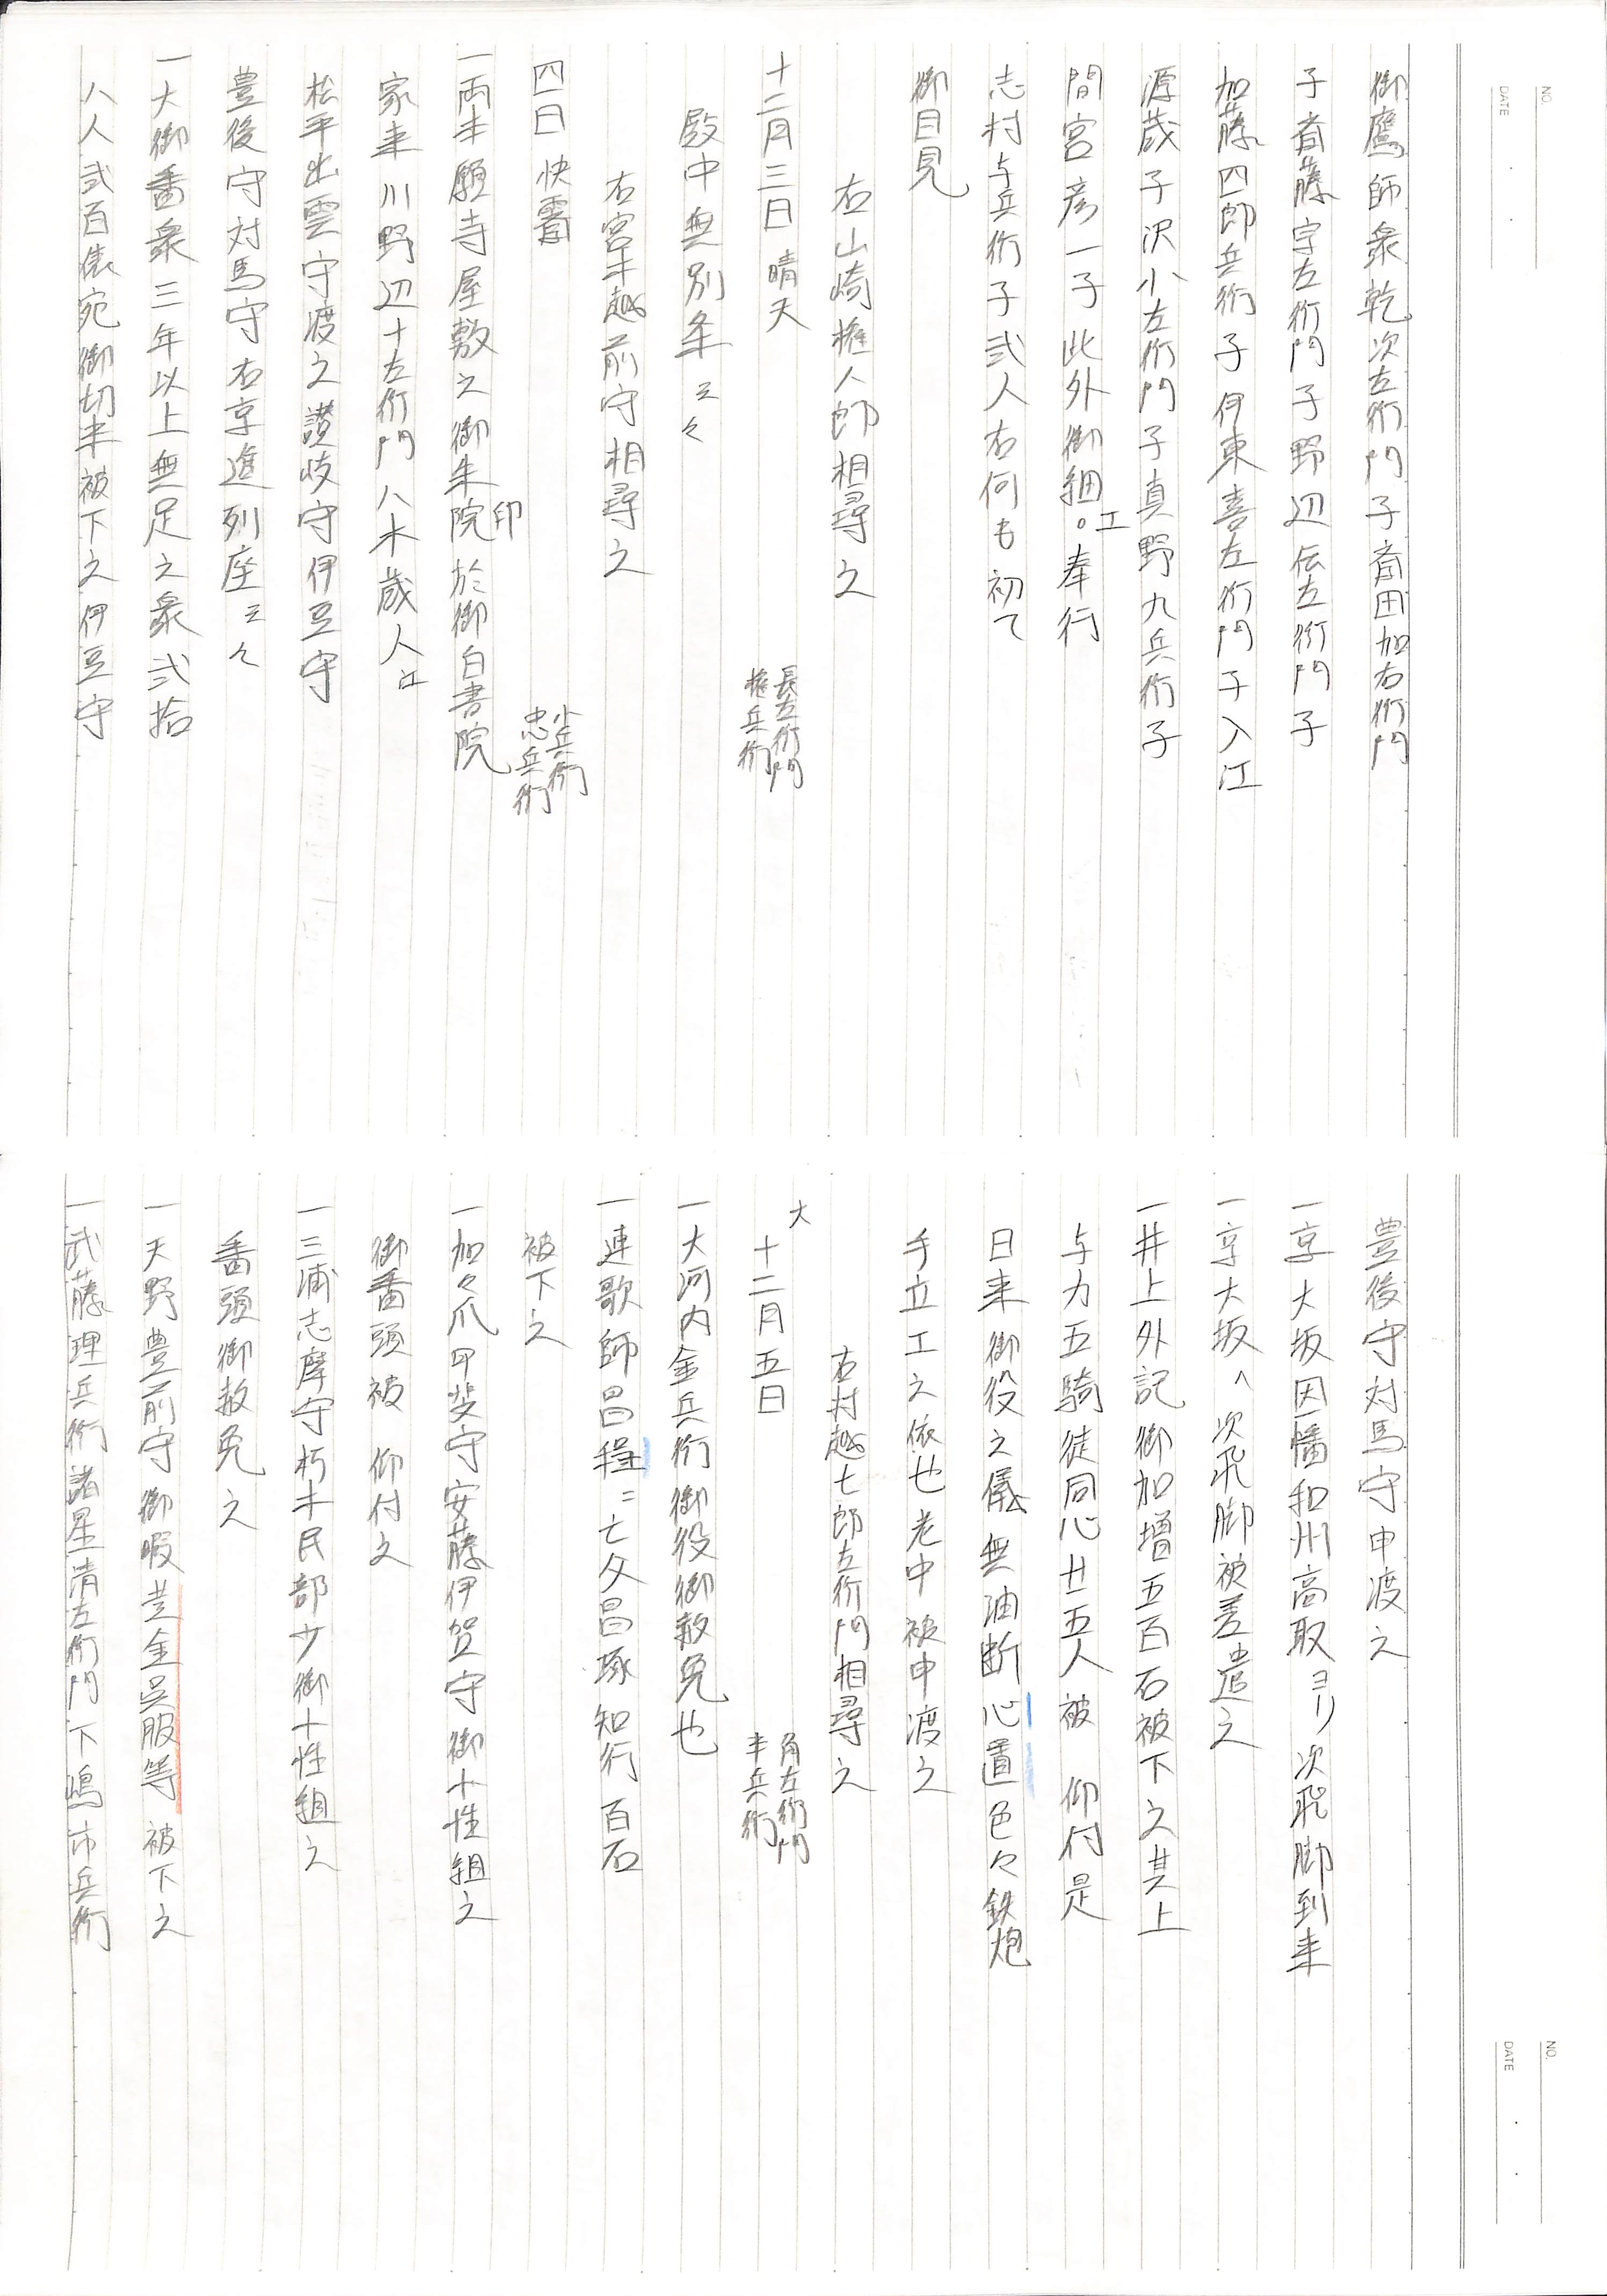 NO.
DATE
御鷹師衆乾次左衛門子斎田加右衛門
子斎藤字左衛門子野辺伝左衛門子
加藤四郎兵衛子伊東喜左衛門子入江
源蔵子沢小左衛門子真野九兵衛子
間宮彦一子此外御細。工奉行
志村与兵衛子弐人右何も初て
御目見
右山崎権八郎相尋之
十二月三日 晴天 長左衛門 権兵衛
殿中無別条云々
右宮末越前守相尋之
四日 快霽 小兵衛 忠兵衛
一両本願寺屋敷之御朱院印於御白書院
家来川野辺十左衛門八木歳人江
松平出雲守渡之讃岐守伊豆守
豊後守対馬守右京進列座云々
一大御番衆三年以上無足之衆弐拾
八人弐百俵宛御切米被下之伊豆守
NO.
DATE
豊後守対馬守申渡之
一京大坂因幡和州高取ヨリ次飛脚到来
一京大坂へ次飛脚被差遣之
一井上外記御加増五百石被下之其上
与力五騎徒同心廿五人被 仰付是
日来御役之儀無油断心置色々鉄炮
手立工之依也老中被申渡之
右村越七郎左衛門相尋之
大
十二月五日 角左衛門 半兵衛
一大河内金兵衛御役御赦免也
一連歌師昌程ニ亡父昌琢知行百石
被下之
一加々爪甲斐守安藤伊賀守御十性組之
御番頭被 仰付之
一三浦志摩守朽木民部少御十性組之
番頭御赦免之
一天野豊前守御暇黄金呉服等被下之
一武藤理兵衛諸星清左衛門下嶋市兵衛